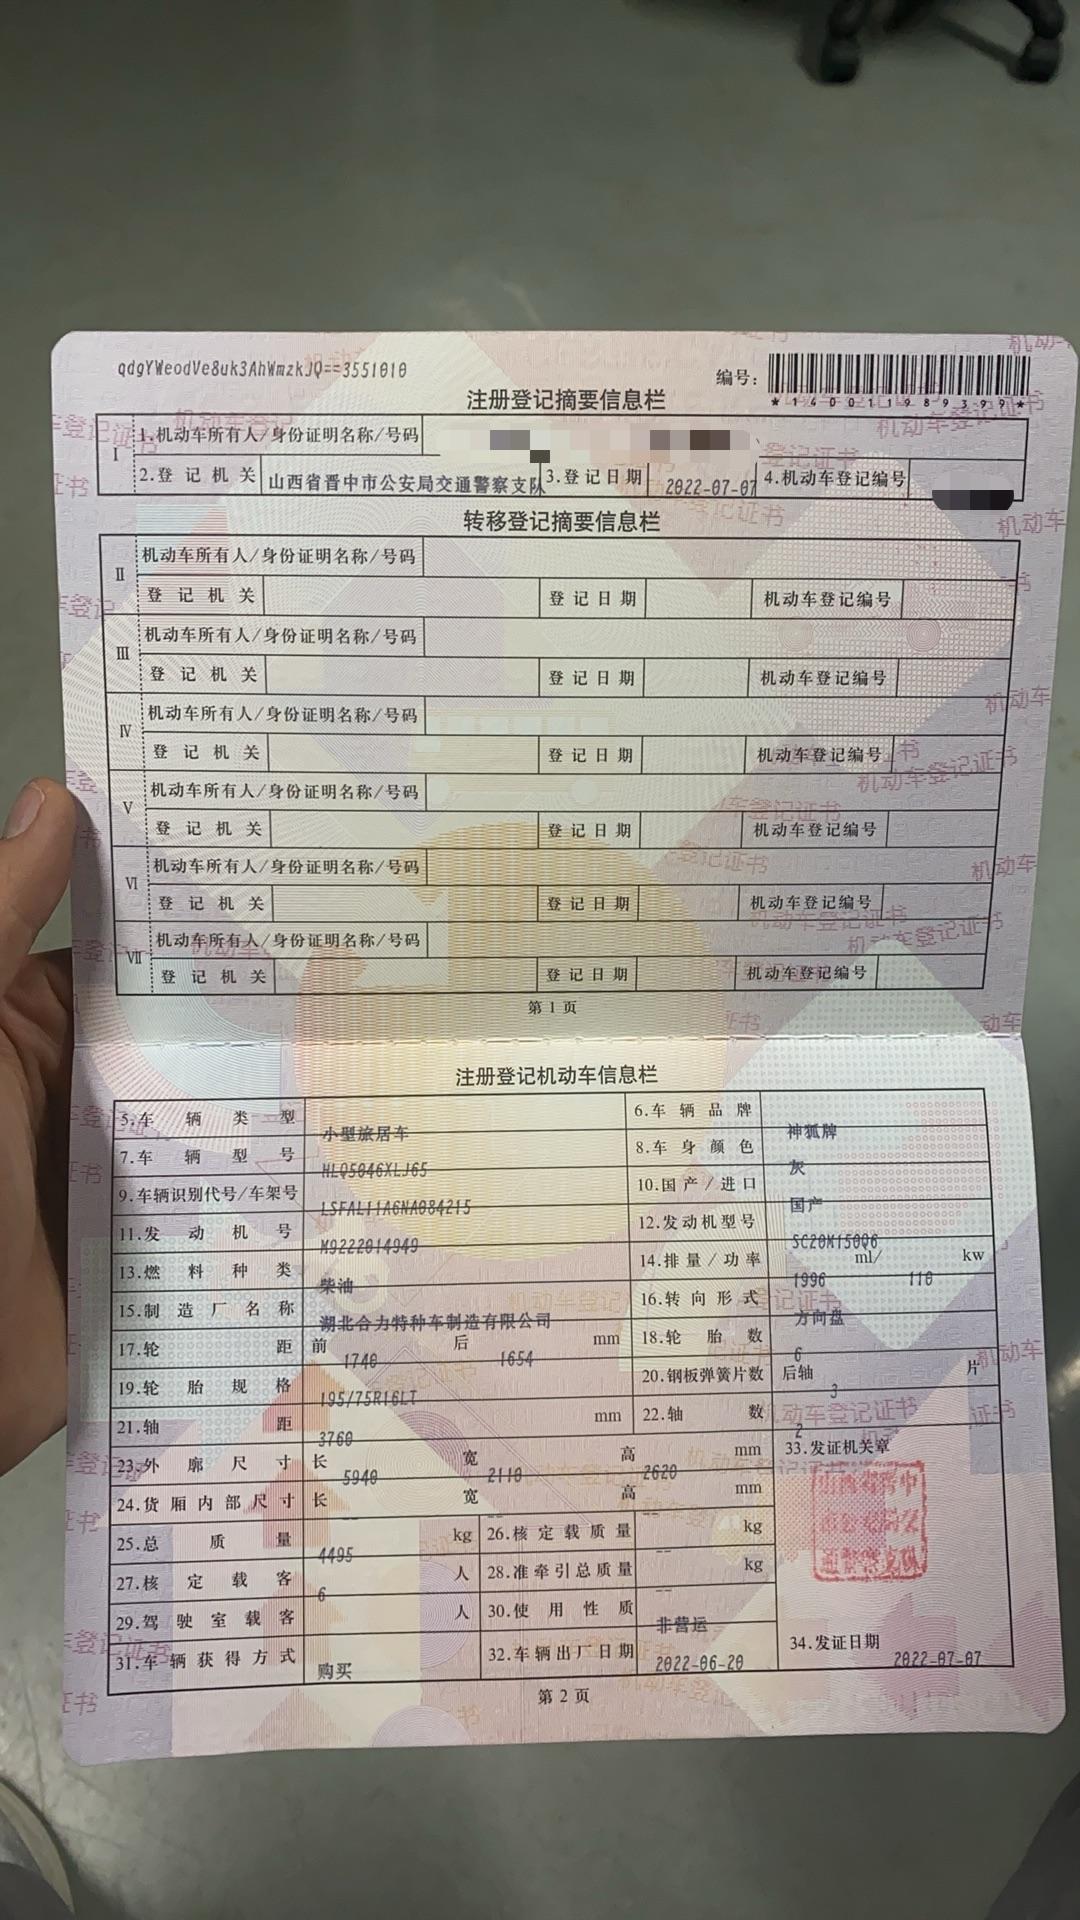 qdgYWeodVe8uk3AhWmzkJQ==3551010
编号：
*140011989399*
注册登记摘要信息栏
I 1.机动车所有人/身份证明名称/号码
2.登记机关 山西省晋中市公安局交通警察支队 3.登记日期 2022-07-07 4.机动车登记编号
转移登记摘要信息栏
II 机动车所有人/身份证明名称/号码
登记机关 登记日期 机动车登记编号
III 机动车所有人/身份证明名称/号码
登记机关 登记日期 机动车登记编号
IV 机动车所有人/身份证明名称/号码
登记机关 登记日期 机动车登记编号
V 机动车所有人/身份证明名称/号码
登记机关 登记日期 机动车登记编号
VI 机动车所有人/身份证明名称/号码
登记机关 登记日期 机动车登记编号
VII 机动车所有人/身份证明名称/号码
登记机关 登记日期 机动车登记编号
第1页
注册登记机动车信息栏
5.车辆类型 小型旅居车 6.车辆品牌 神狐牌
7.车辆型号 HLQ5046XLJ65 8.车身颜色 灰
9.车辆识别代号/车架号 LSFAL11A6NA084215 10.国产/进口 国产
11.发动机号 M9222014949 12.发动机型号 SC20M150Q6
13.燃料种类 柴油 14.排量/功率 1996 ml/ 110 kw
15.制造厂名称 湖北合力特种车制造有限公司 16.转向形式 方向盘
17.轮距 前 1740 后 1654 mm 18.轮胎数 6
19.轮胎规格 195/75R16LT 20.钢板弹簧片数 后轴 3 片
21.轴距 3760 mm 22.轴数 2
23.外廓尺寸 长 5940 宽 2110 高 2620 mm 33.发证机关章
24.货厢内部尺寸 长 -- 宽 -- 高 -- mm
25.总质量 4495 kg 26.核定载质量 -- kg
27.核定载客 6 人 28.准牵引总质量 -- kg
29.驾驶室载客 人 30.使用性质 非营运
31.车辆获得方式 购买 32.车辆出厂日期 2022-06-20 34.发证日期 2022-07-07
第2页